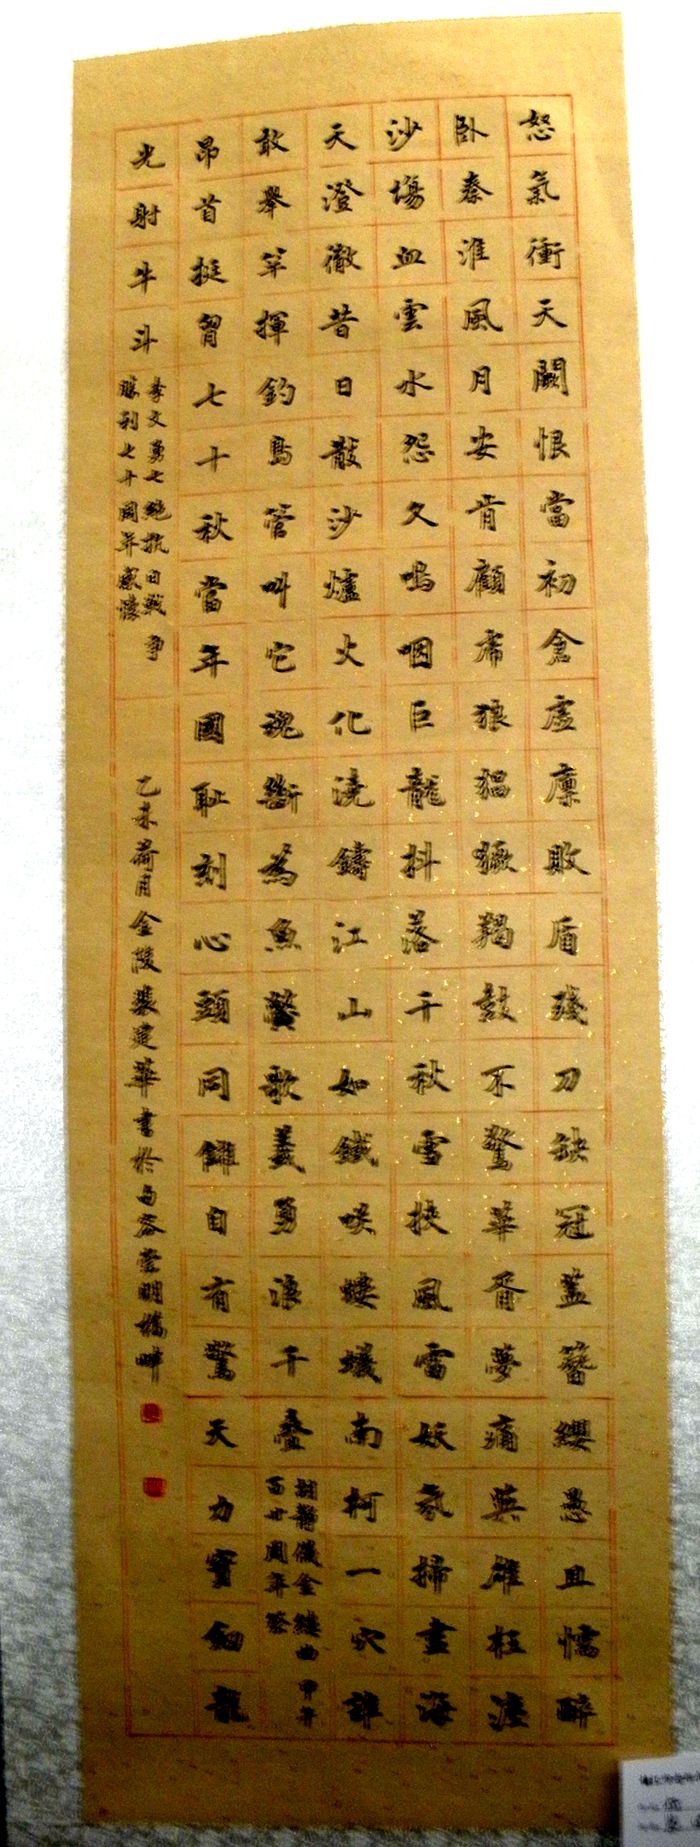 怒氣衝天闕恨當初倉虛廩敗盾殘刀缺冠蓋簪纓愚且懦醉
臥秦淮風月安肯顧席狼猖獗羯鼓不驚華胥夢痛英雄枉灑
沙場血雲水怨久嗚咽巨龍抖落千秋雪挾風雷妖氛掃盡海
天澄徹昔日散沙爐火化澆鑄江山如鐵咲螻蟻南柯一穴誰
敢舉竿揮釣島管叫它魂斷為魚鱉歌義勇浪千疊
胡靜儀金縷曲甲午
百廿周年祭
昂首挺胸七十秋當年國恥刻心頭同儕自有驚天力寶劍龍
光射牛斗
李文勇七絕抗日戰爭
勝利七十周年感懷
乙未荷月金陵裴建華書於句容崇明橋畔